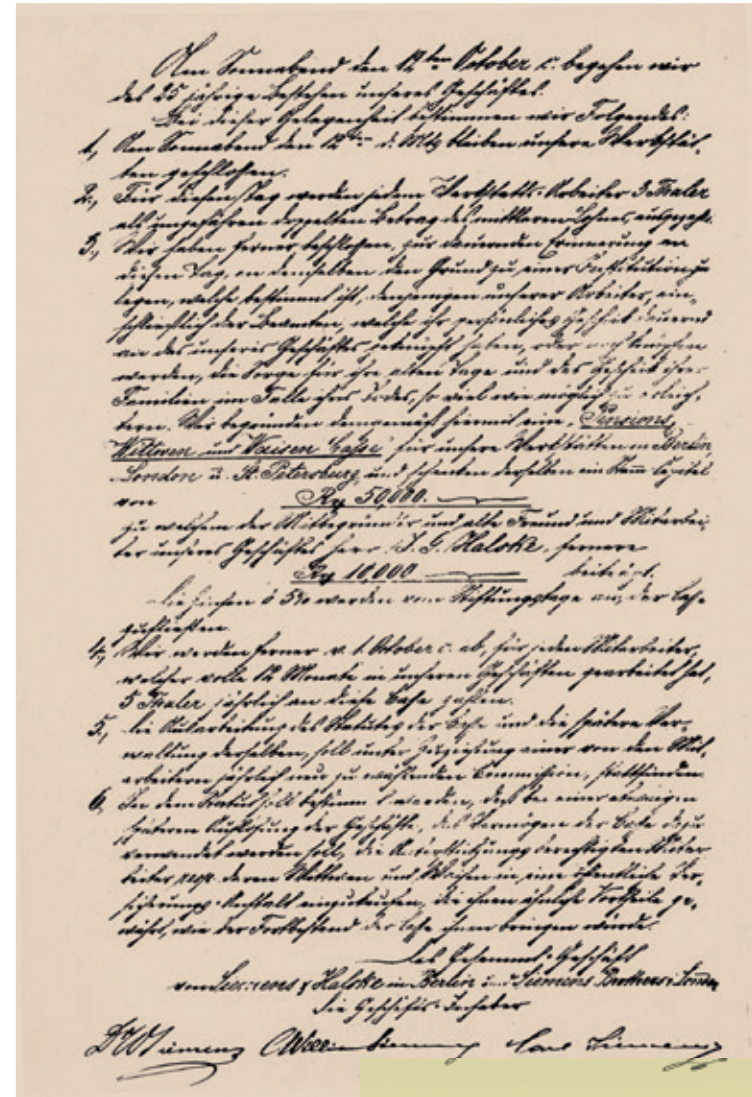 Am Sonnabend den 12ten October c. begehen wir
das 25 jährige Bestehen unseres Geschäftes.
Bei dieser Gelegenheit bestimmen wir Folgendes:
1, Am Sonnabend den 12ten d. Mts bleiben unsere Werkstät-
ten geschlossen.
2, Für diesen Tag werden jedem Werkstatts-Arbeiter 3 Thaler
als ungefähren doppelten Betrag des mittleren Lohnes ausgezahlt.
3, Wir haben ferner beschlossen, zur dauernden Erinnerung an
diesen Tag, an demselben den Grund zu einer Institution zu
legen, welche bestimmt ist, denjenigen unserer Arbeiter, ein-
schliesslich der Beamten, welche ihr persönliches Geschick dauernd
an das unseres Geschäftes geknüpft haben, oder noch knüpfen
werden, die Sorge für ihre alten Tage und das Geschick ihrer
Familien im Falle ihres Todes, so viel wie möglich zu erleich-
tern. Wir begründen demgemäß hiermit eine "Pensions,
Wittwen und Waisen Casse" für unsere Werkstätten in Berlin,
London u. St. Petersburg und schenken derselben ein Stamm Capital
von Rx 50,000.
zu welchem der Mitbegründer und alte Freund und Mitarbei-
ter unseres Geschäftes Herr J. G. Halske, fernere
Rx 10,000 beiträgt.
Die Zinsen à 5% werden vom Stiftungstage an, der Casse
zufließen.
4, Wir werden ferner v. 1. October c. ab, für jeden Mitarbeiter,
welcher volle 12 Monate in unseren Geschäften gearbeitet hat,
5 Thaler jährlich an diese Casse zahlen.
5, Die Ausarbeitung des Statutes der Casse und die spätere Ver-
waltung derselben, soll unter Zuziehung einer von den Mit-
arbeitern jährlich neu zu wählenden Commission, stattfinden.
6, In dem Statut soll bestimmt werden, daß bei einer etwaigen
späteren Auflösung der Geschäfte, das Vermögen der Casse dazu
verwendet werden soll, die Unterstützungsberechtigten Mitar-
beiter, resp. deren Wittwen und Waisen in eine öffentliche Ver-
sicherungs-Anstalt einzukaufen, die ihnen ähnliche Vortheile ge-
währt, wie der Fortbestand der Casse ihnen bringen würde.
Das Gesammt-Geschäft
von Siemens & Halske in Berlin und Siemens Brothers in London
die Geschäfts-Inhaber
Dr W Siemens C William Siemens Carl Siemens